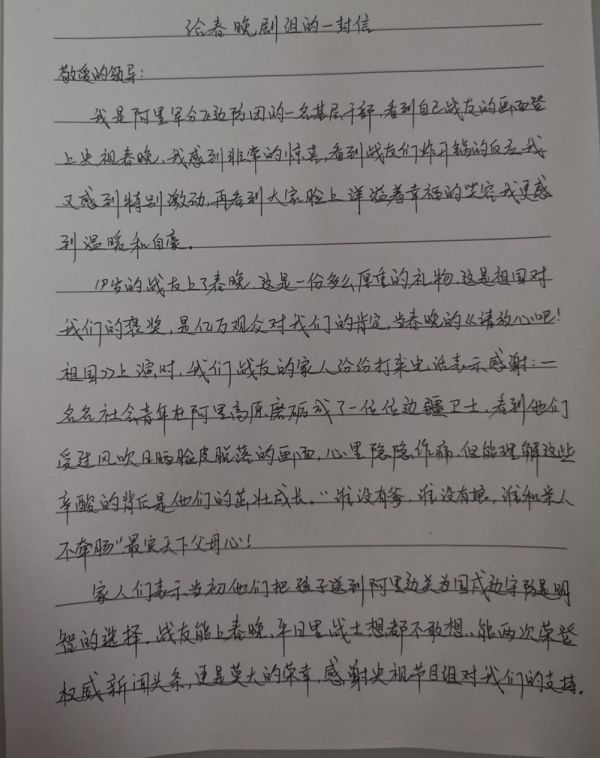 给春晚剧组的一封信
敬爱的领导:
我是阿里军分区边防团的一名基层干部,看到自己战友的画面登
上央视春晚,我感到非常的惊喜,看到战友们炸开锅的反应,我
又感到特别激动,再看到大家脸上洋溢着幸福的笑容,我更感
到温暖和自豪。
19岁的战友上了春晚,这是一份多么厚重的礼物,这是祖国对
我们的褒奖,是亿万观众对我们的肯定,当春晚的《请放心吧!
祖国》上演时,我们战友的家人纷纷打来电话表示感谢:一
名名社会青年在阿里高原磨砺成了一位位边疆卫士,看到他们
受过风吹日晒脸皮脱落的画面,心里隐隐作痛,但能理解这些
辛酸的背后是他们的茁壮成长。“谁没有爹,谁没有娘,谁和亲人
不牵肠”最究天下父母心!
家人们表示当初他们把孩子送到阿里边关为国戍边守防是明
智的选择,战友能上春晚,平日里战士想都不敢想,能两次荣登
权威新闻头条,更是莫大的荣幸,感谢央视节目组对我们的支持。